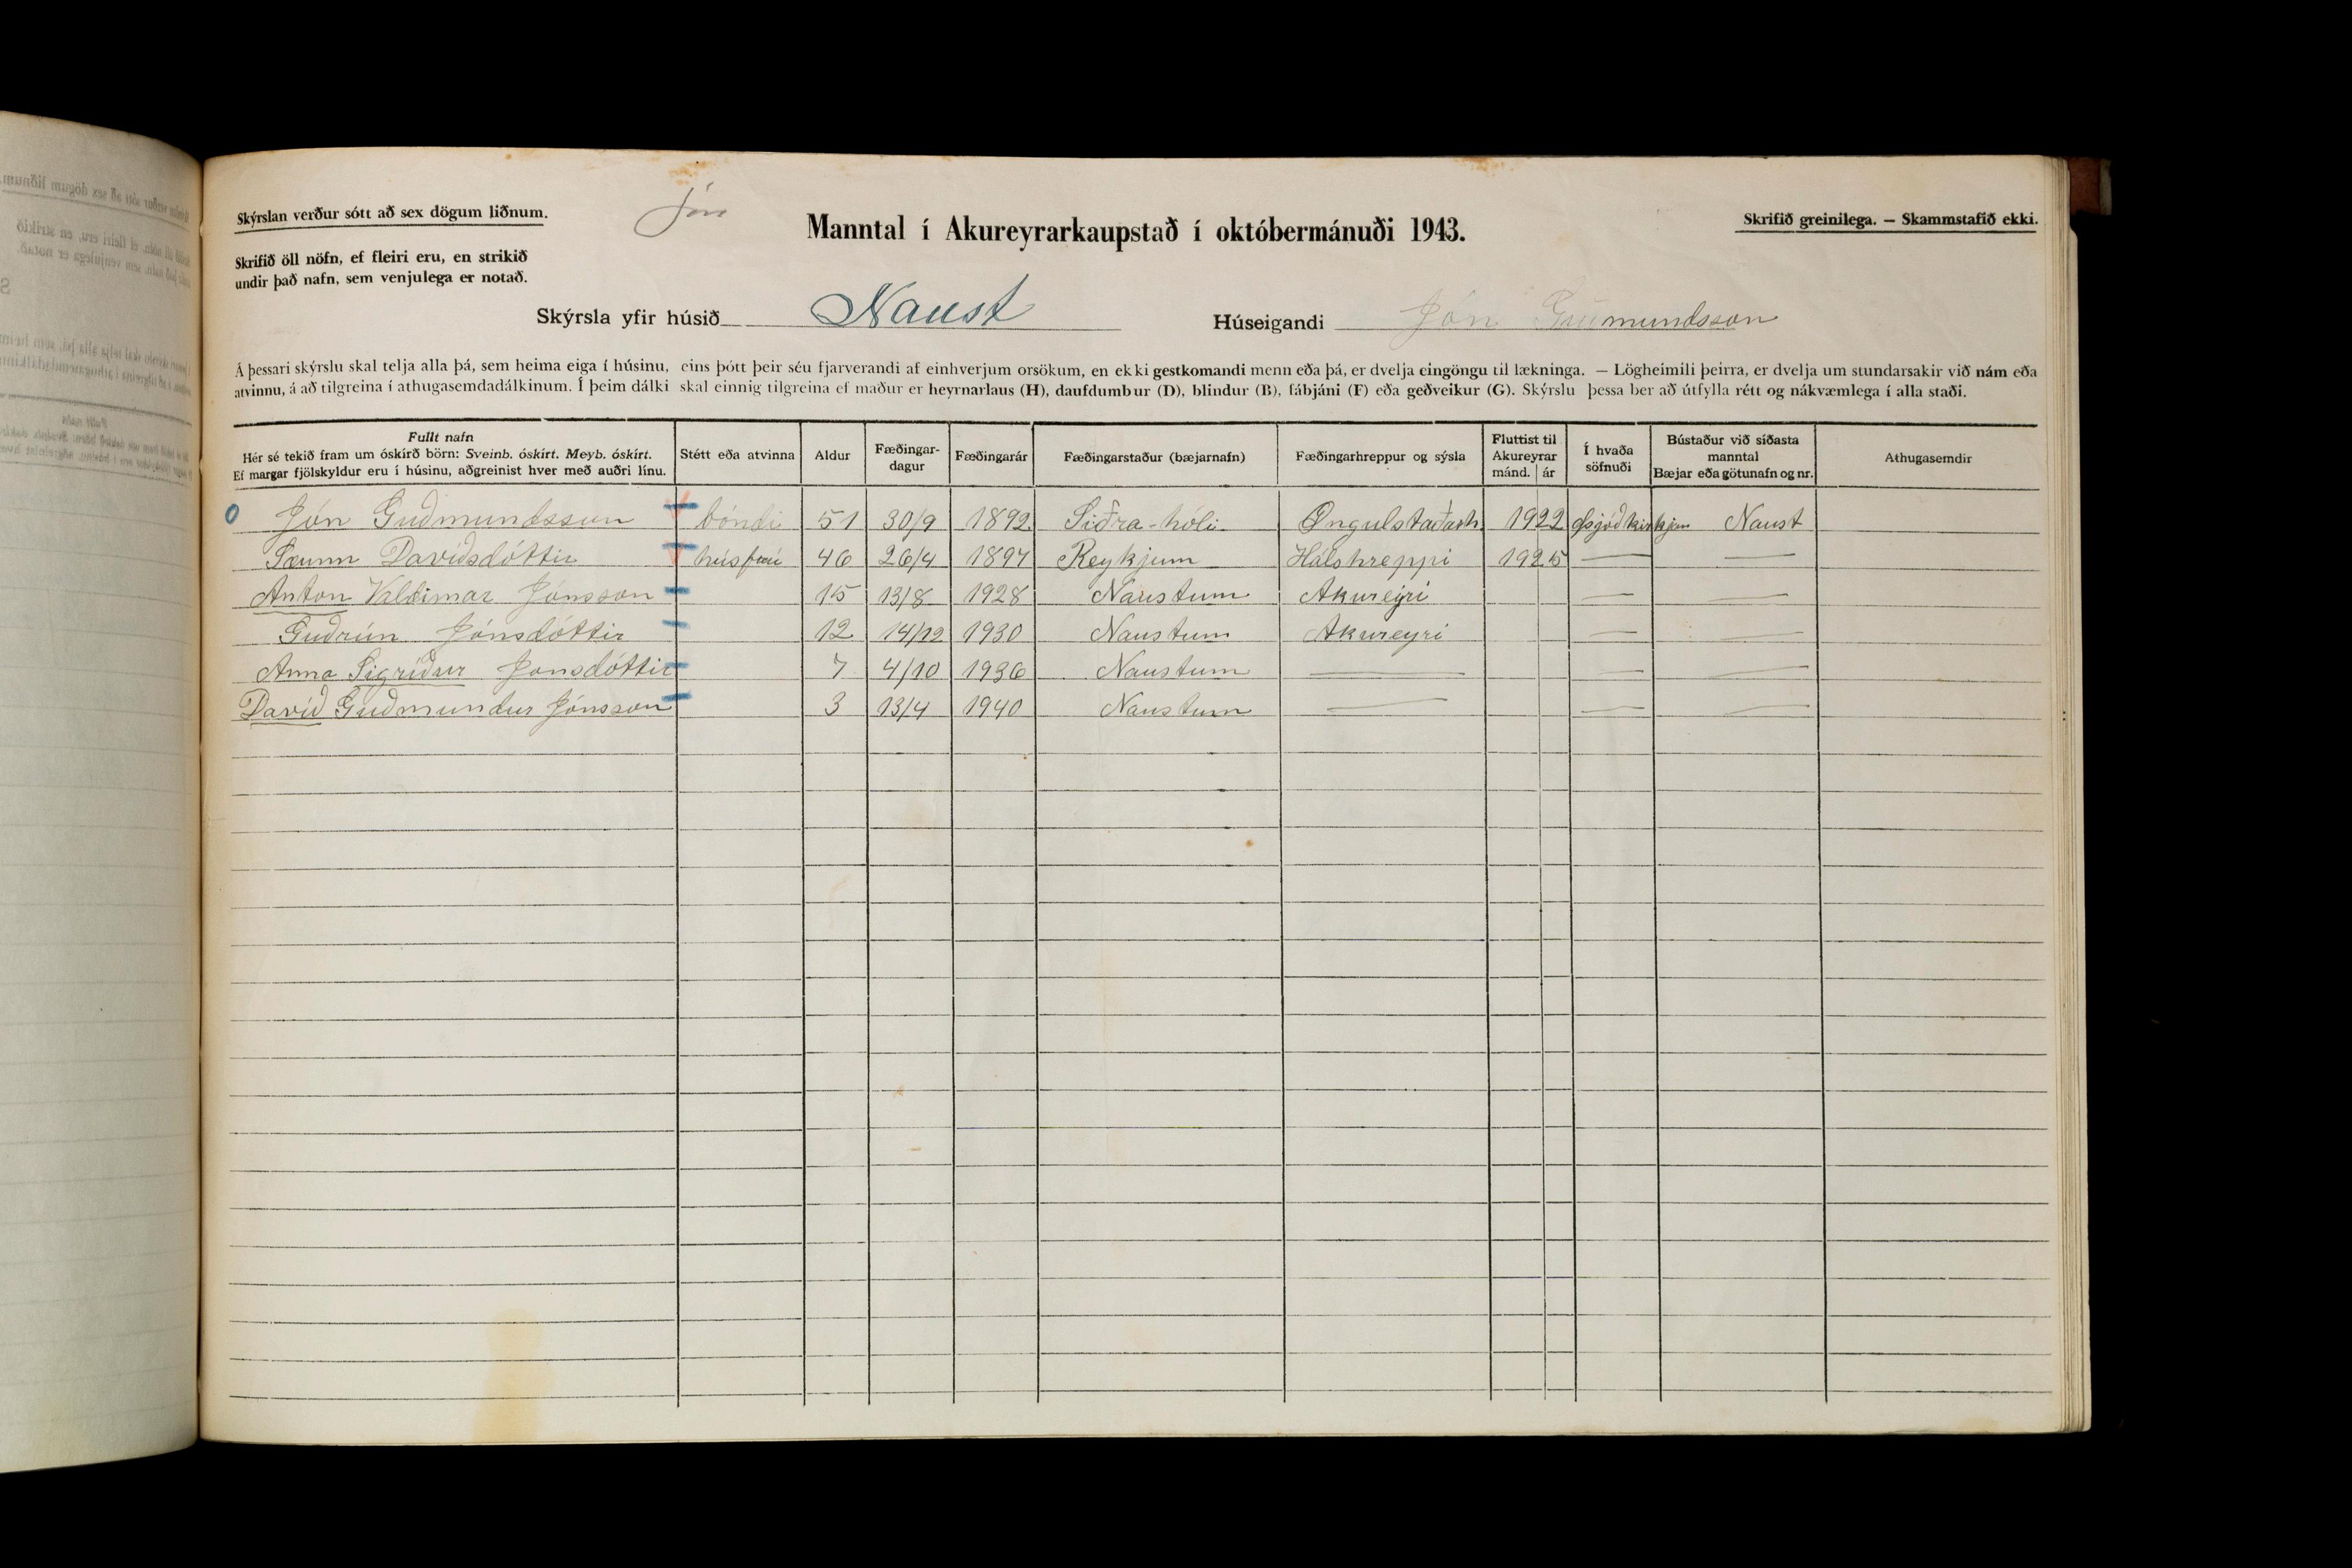 Skýrslan verður sótt að sex dögum liðnum.
Jón
Manntal í Akureyrarkaupstað í októbermánuði 1943.
Skrifið greinilega. — Skammstafið ekki.
Skrifið öll nöfn, ef fleiri eru, en strikið
undir það nafn, sem venjulega er notað.
Skýrsla yfir húsið Naust Húseigandi Jón Guðmundsson
Á þessari skýrslu skal telja alla þá, sem heima eiga í húsinu, eins þótt þeir séu fjarverandi af einhverjum orsökum, en ekki gestkomandi menn eða þá, er dvelja eingöngu til lækninga. — Lögheimili þeirra, er dvelja um stundarsakir við nám eða
atvinnu, á að tilgreina í athugasemdadálkinum. Í þeim dálki skal einnig tilgreina ef maður er heyrnarlaus (H), daufdumbur (D), blindur (B), fábjáni (F) eða geðveikur (G). Skýrslu þessa ber að útfylla rétt og nákvæmlega í alla staði.
Fullt nafn
Hér sé tekið fram um óskírð börn: Sveinb. óskírt. Meyb. óskírt.
Ef margar fjölskyldur eru í húsinu, aðgreinist hver með auðri línu.
Stétt eða atvinna
Aldur
Fæðingar-
dagur
Fæðingarár
Fæðingarstaður (bæjarnafn)
Fæðingarhreppur og sýsla
Fluttist til
Akureyrar
mánd. | ár
Í hvaða
söfnuði
Bústaður við síðasta
manntal
Bæjar eða götunafn og nr.
Athugasemdir
Jón Guðmundsson bóndi 51 30/9 1892 Siðra-hóli Öngulstaðarh. 1922 Þjóðkirkjan Naust
Sæunn Davíðsdóttir húsfrú 46 26/4 1897 Reykjum Hálshreppi 1925 — —
Anton Valdimar Jónsson 15 13/8 1928 Naustum Akureyri — —
Guðrún Jónsdóttir 12 14/12 1930 Naustum Akureyri — —
Anna Sigríður Jónsdóttir 7 4/10 1936 Naustum — — —
Davíð Guðmundur Jónsson 3 13/4 1940 Naustum — — —